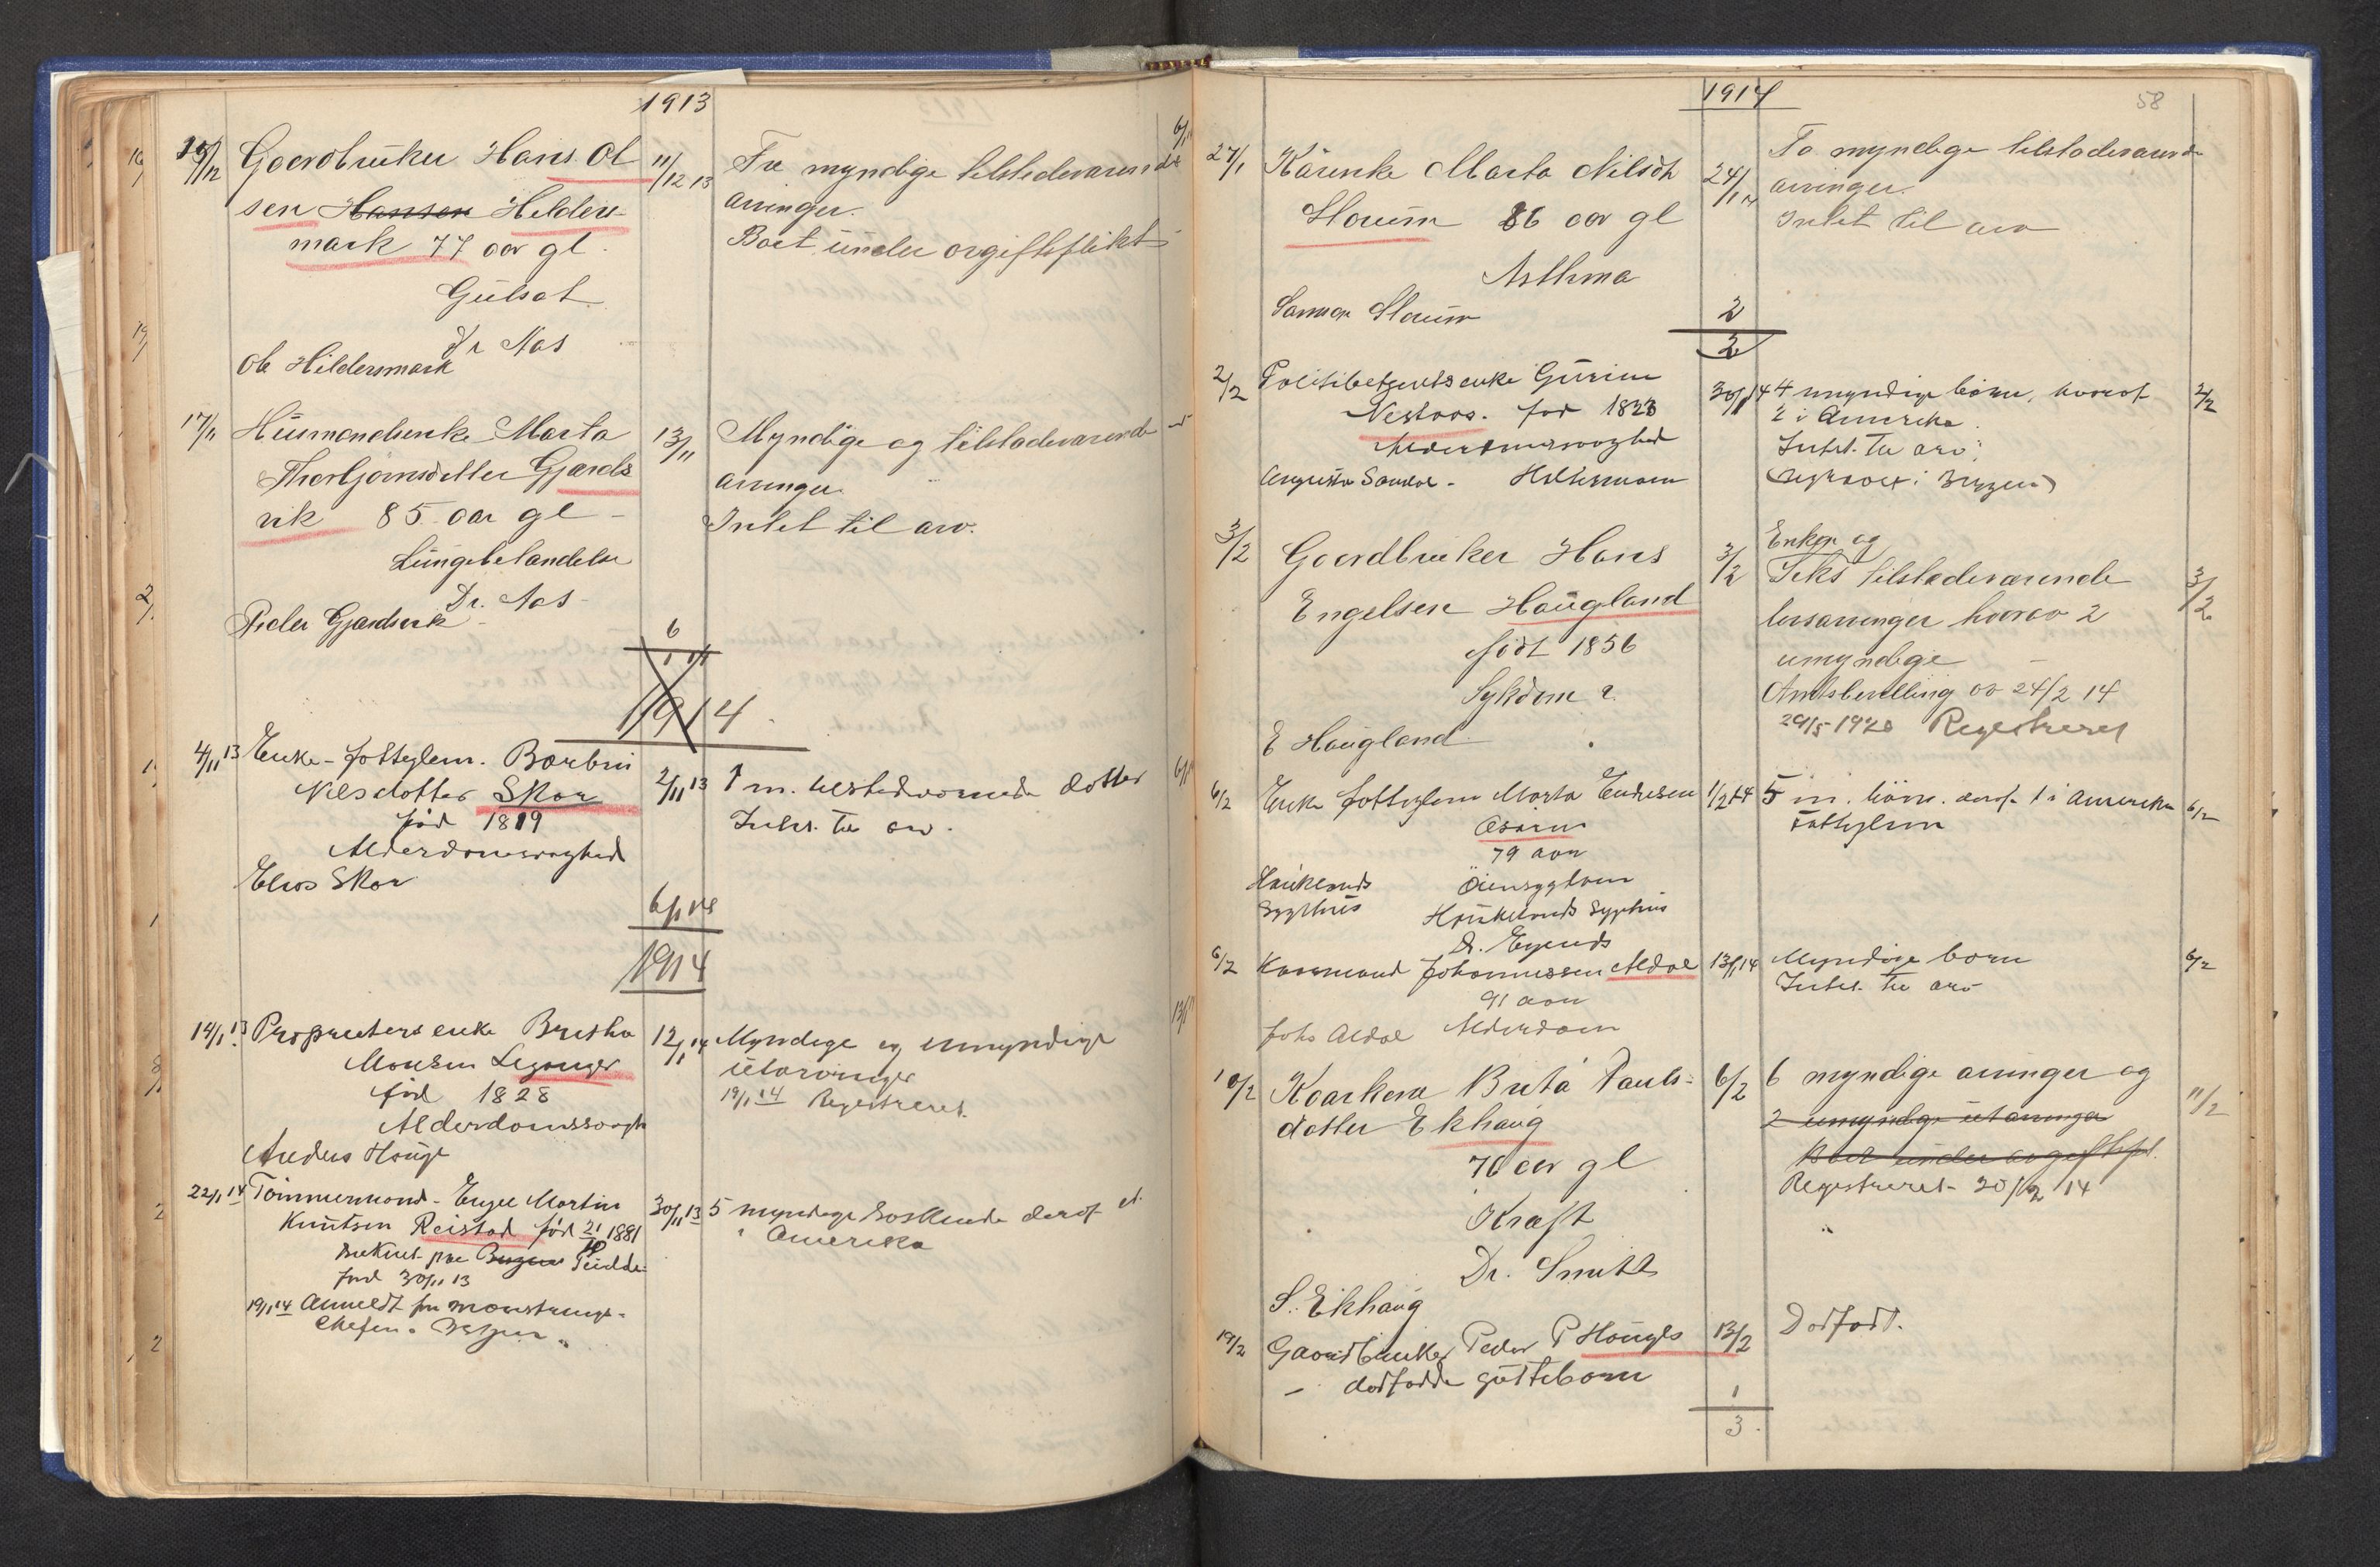 1913
Gaardbruker Hans Ol
sen Hansen Hilders
mark 77 aar gl.
Gulsot
Dr Aas
Ole Hildersmark
11/12 13
Tre myndige tilstedeværende
arvinger.
Boet under avgiftsplikt
17/11
Husmandsenke Marta
Thorbjørnsdatter Gjærds
vik 85 aar gl -
Lungebetændelse
Dr. Aas -
Peder Gjærdsvik
13/11
Myndige og tilstedeværende
arvinger.
Intet til arv.
6
1914
4/11 13
Enke - fattiglem. Barbru
Nilsdatter Skor
fød 1819
Alderdomssvaghed
Elias Skor
2/11 13
1 m. tilstedværende datter
Intet til arv.
6/1
1914
14/1
Proprietærenke Britha
Monsen Leganger
fød 1828
Alderdomssvagh
Anders Hauge
12/1 14
Myndige og umyndige
utarvinger
19/1 14 Registreret.
22/1 14
Tømmermand - Engel Martin
Knutsen Reistad fød 21/10 1881
druknet paa Bergens Pudde-
fjord 30/11 13
19/1 14 Anmeldt fra Mønstrings-
chefen. Bergen.
30/11 13
5 myndige søskende deraf et
i Amerika
1914
58
27/1
Kårenke Marta Nilsdtr
Hauum 86 aar gl
Asthma
24/1 14
To myndige tilstedeværende
arvinger.
Intet til arv
2
2
2/2
Politibetjentsenke Gurine
Nestaas. fød 1823
Alderdomssvaghed
30/1 14
4 myndige børn, hvoraf
2 i Amerika.
Intet til arv.
2/2
3/2
Gaardbruker Hans
Engelsen Haugland
født 1856
Sykdom ?
E Haugland
3/2
Enken og
Seks tilstedeværende
livsarvinger hvorav 2
umyndige
Amtsbevilling av 24/2 14
29/5 1920 Registreret
3/2
6/2
Enke fattiglem Marta Endresen
79 aar
Øiensygdom
Haukelands
Sygehus
Haukelands Sygehus
1/2 14
5 m. børn. deraf 1 i Amerika
Fattiglem
6/2
6/2
Kaarmand Johannessen Aldal
91 aar
Alderdom
Johs Aldal
13/1 14
Myndige børn
Intet til arv
6/2
10/2
Kaarkona Brita Pauls-
datter Ekhaug
76 aar gl
Kræft
Dr. Smith
S. Ekhaug
6/2
6 myndige arvinger og
2 umyndige utarvinger
Boet under avgiftspl.
Registreret 20/2 14
11/2
19/2
Gaardbruker Peder P Hauges
- dødfødde guttebarn
13/2
Dødfødt.
1
3